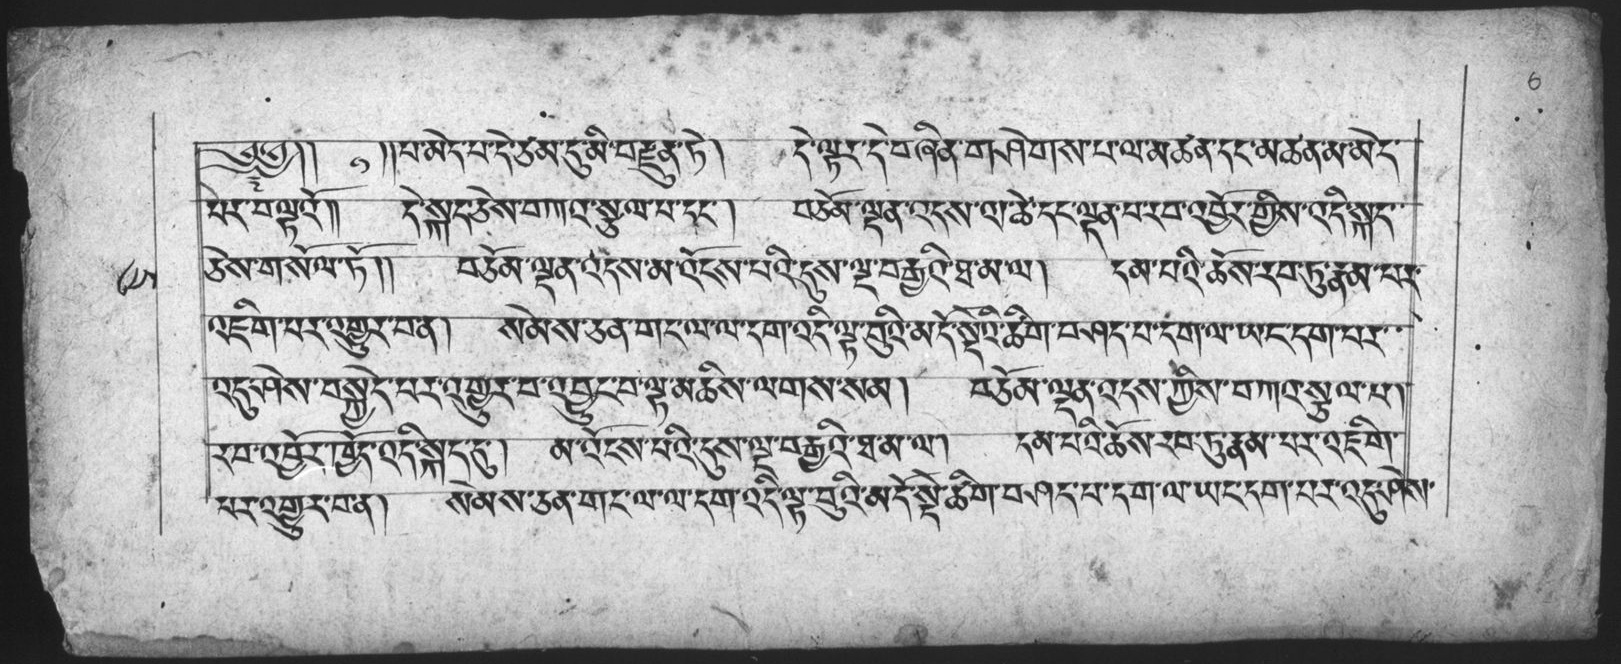 ༄༅།། ༡ །།པ་མེད་པ་དེ་ཙམ་དུ་མི་བརྫུན་ཏེ། དེ་ལྟར་དེ་བཞིན་གཤེགས་པ་ལ་མཚན་དང་མཚན་མ་མེད་
6
པེར་བལྟའོ།། དེ་སྐད་ཅེས་བཀའ་སྩལ་པ་དང་། བཅོམ་ལྡན་འདས་ལ་ཚེ་དང་ལྡན་པ་རབ་འབྱོར་གྱིས་འདི་སྐད་
ཅེས་གསོལ་ཏོ།། བཅོམ་ལྡན་འདས་མ་འོངས་པའི་དུས་ལྔ་བརྒྱའི་ཐ་མ་ལ། དམ་པའི་ཆོས་རབ་ཏུ་རྣམ་པར་
འཇིག་པར་འགྱུར་བན། སེམས་ཅན་གང་ལ་ལ་དག་འདི་ལྟ་བུའི་མདོ་སྡེའི་ཚིག་བཤད་པ་དག་ལ་ཡང་དག་པར་
འདུ་ཤེས་བསྐྱེད་པར་འགྱུར་བ་འབྱུང་བ་ལྟ་མཆིས་ལགས་སམ། བཅོམ་ལྡན་འདས་ཀྱིས་བཀའ་སྩལ་པ།
རབ་འབྱོར་ཁྱོད་འདི་སྐད་དུ། མ་འོངས་པའི་དུས་ལྔ་བརྒྱའི་ཐ་མ་ལ། དམ་པའི་ཆོས་རབ་ཏུ་རྣམ་པར་འཇིག་
པར་འགྱུར་བན། སེམས་ཅན་གང་ལ་ལ་དག་འདི་ལྟ་བུའི་མདོ་སྡེ་ཚིག་བཤད་པ་དག་ལ་ཡང་དག་པར་འདུ་ཤེས་